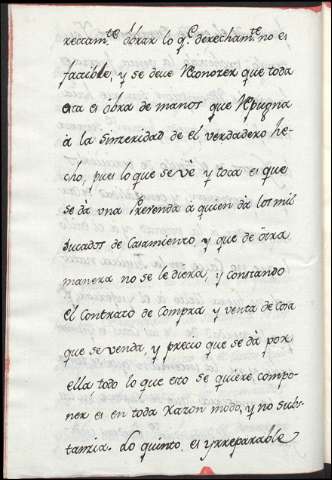 rectam.te obrar lo q.e derecham.te no es
facible, y se deve Reconozer que toda
esta es obra de manos que Repugna
à la sinzeridad de el verdadero he-
cho, pues lo que se vè y toca es que
se dà una Prevenda à quien dà los mil
Ducados de Casamiento, y que de otra
manera no se le diera, y constando
el Contrato de Compra y venta de Cosa
que se venda, y precio que se dà por
ella, todo lo que esto se quiere compo-
ner es en toda razon modo, y no subs-
tanzia. Lo quinto es yrreparable